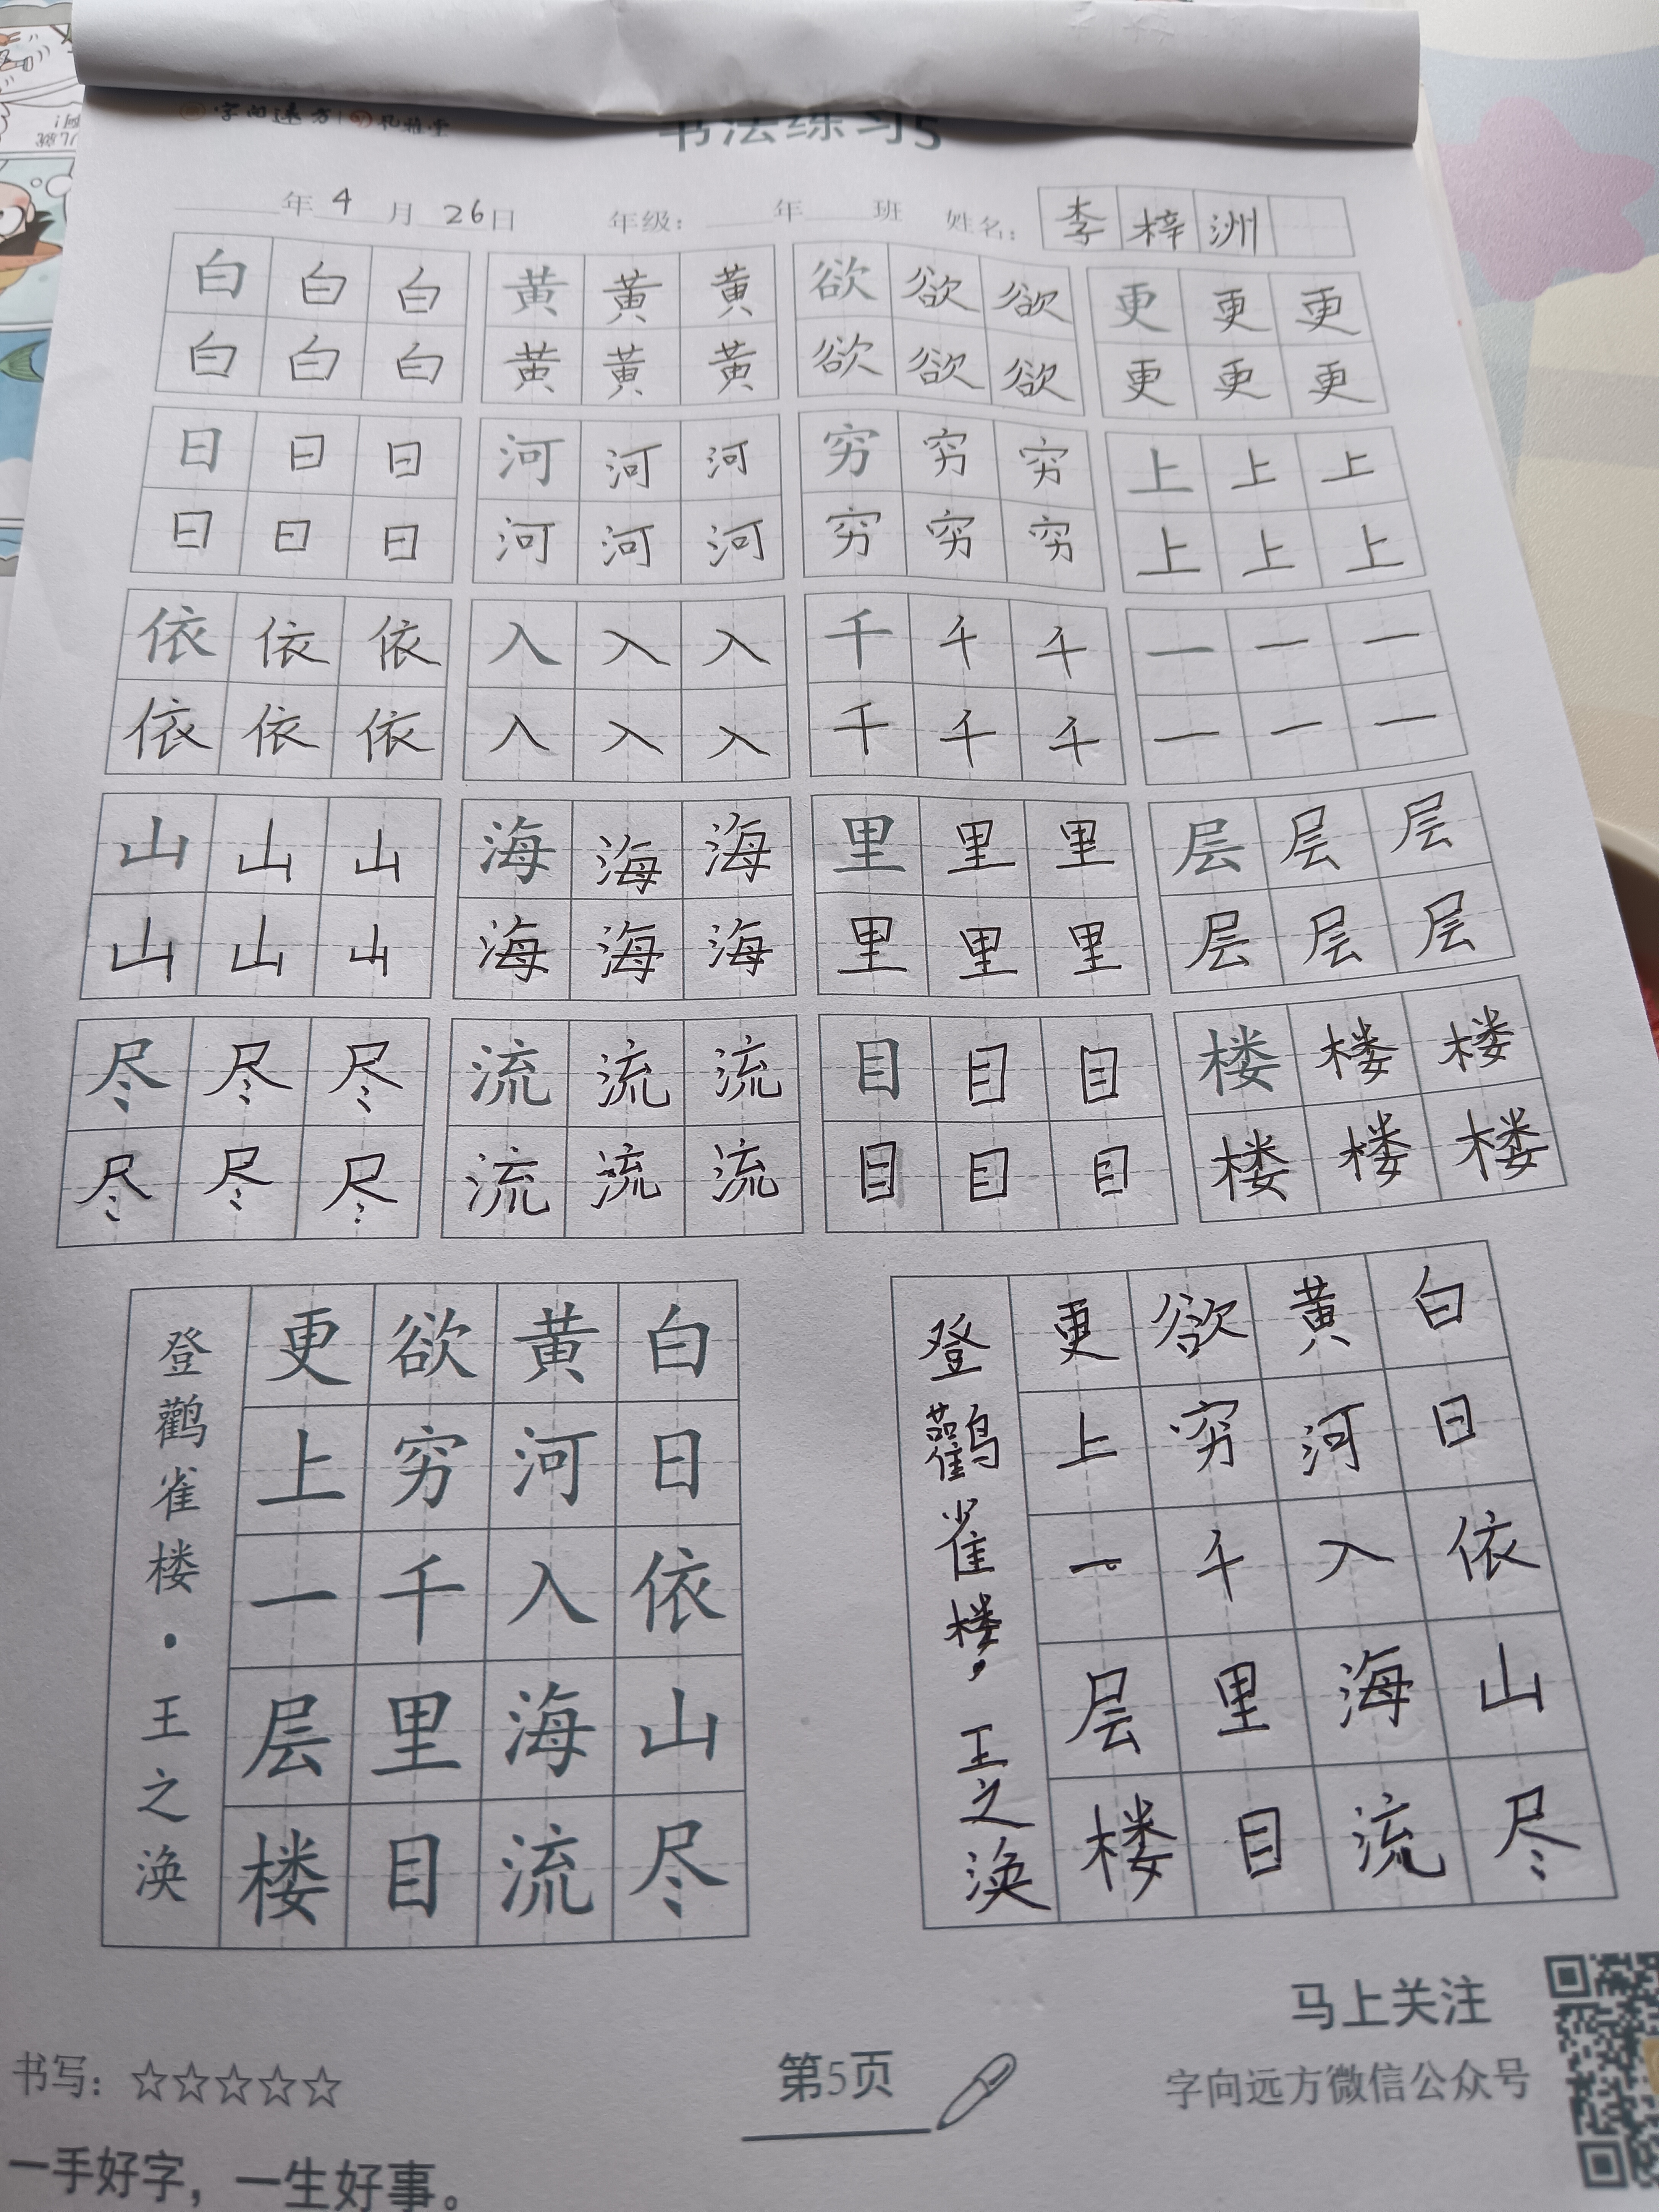 字向远方 孔雅堂
书法练习5
年 4 月 26日 年级: 年 班 姓名: 李梓洲
白 白 白 黄 黄 黄 欲 欲 欲 更 更 更
白 白 白 黄 黄 黄 欲 欲 欲 更 更 更
日 日 日 河 河 河 穷 穷 穷 上 上 上
日 日 日 河 河 河 穷 穷 穷 上 上 上
依 依 依 入 入 入 千 千 千 一 一 一
依 依 依 入 入 入 千 千 千 一 一 一
山 山 山 海 海 海 里 里 里 层 层 层
山 山 山 海 海 海 里 里 里 层 层 层
尽 尽 尽 流 流 流 目 目 目 楼 楼 楼
尽 尽 尽 流 流 流 目 目 目 楼 楼 楼
白日依山尽
黄河入海流
欲穷千里目
更上一层楼
登鹳雀楼·王之涣
白日依山尽
黄河入海流
欲穷千里目
更上一层楼
登鹳雀楼·王之涣
马上关注
字向远方微信公众号
书写:☆☆☆☆☆
第5页
一手好字，一生好事。